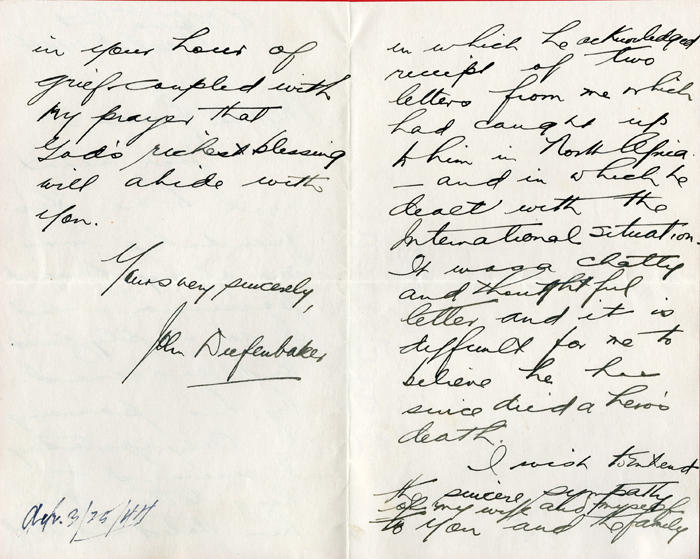 in which he acknowledged
receipt of two
letters from me which
had caught up
to him in North Africa.
— and in which he
dealt with the
International situation.
It was a chatty
and thoughtful
letter and it is
difficult for me to
believe he has
since died a hero's
death.
I wish to extend
the sincere sympathy
of my wife and myself
to you and the family
in your hour of
grief coupled with
my prayer that
God's richest blessing
will abide with
you.
Yours very sincerely,
John Diefenbaker
3/25/44